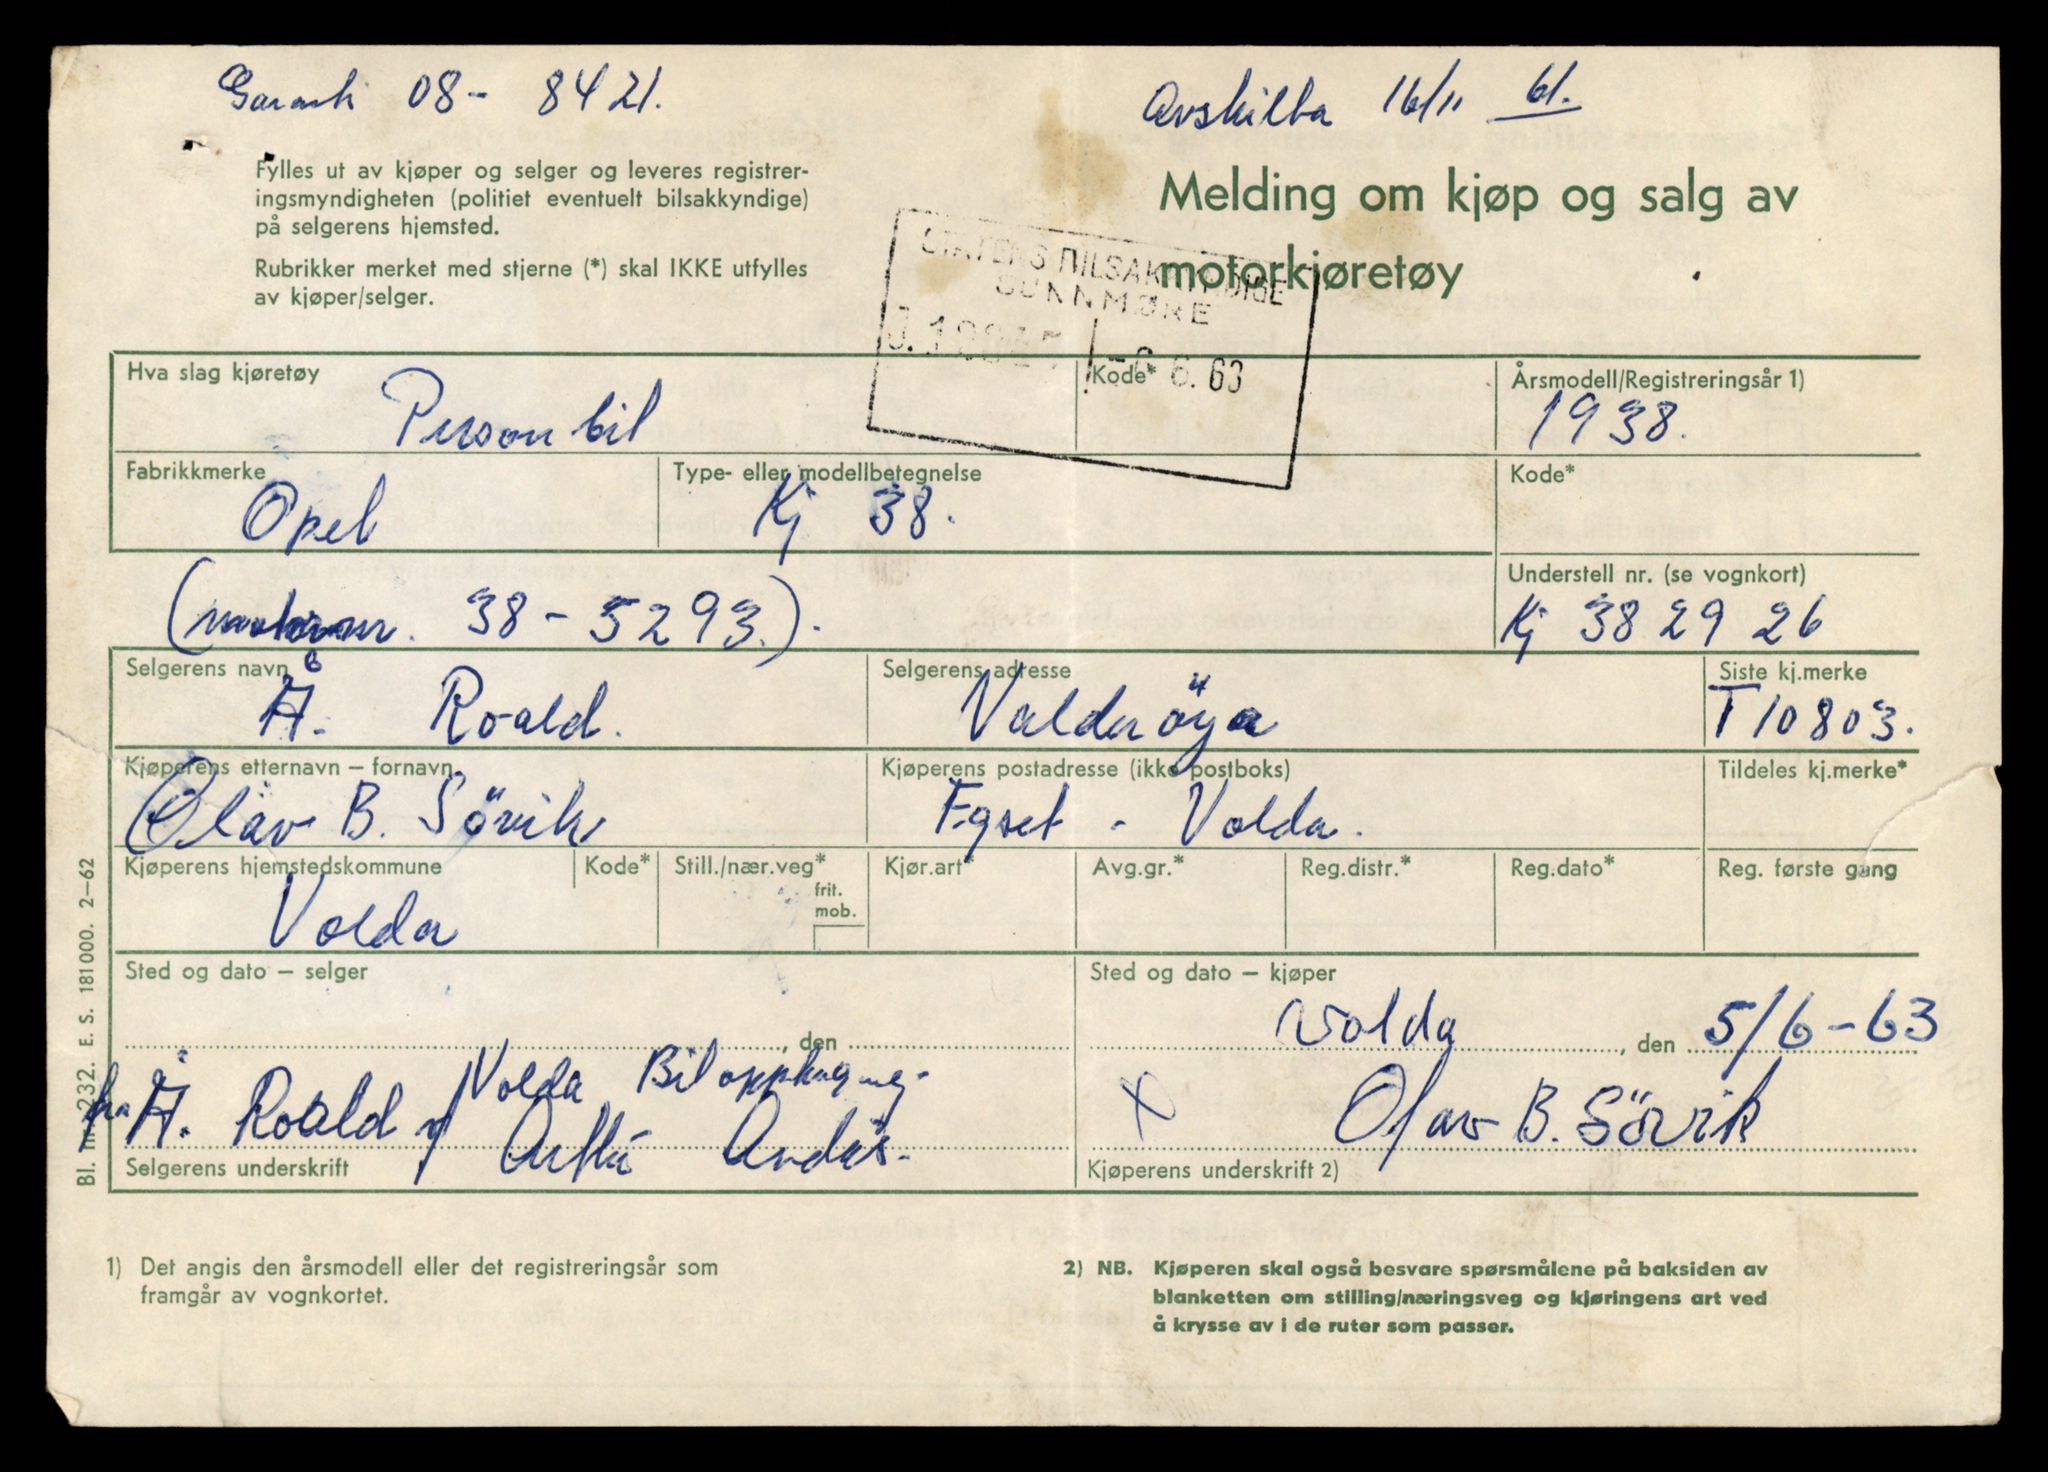 Garanti 08- 8421.
Avskilta 16/11 61.
Fylles ut av kjøper og selger og leveres registrer-
ingsmyndigheten (politiet eventuelt bilsakkyndige)
på selgerens hjemsted.
Rubrikker merket med stjerne (*) skal IKKE utfylles
av kjøper/selger.
Melding om kjøp og salg av
motorkjøretøy
STATENS BILSAKKYNDIGE
SUNNMØRE
-6 6. 63
Hva slag kjøretøy
Personbil
Kode*
Årsmodell/Registreringsår 1)
1938.
Fabrikkmerke
Opel
Type- eller modellbetegnelse
Kj 38.
Kode*
(motornr. 38-5293.).
Understell nr. (se vognkort)
Kj 38 29 26
Selgerens navn
Å. Roald.
Selgerens adresse
Valderöya
Siste kj.merke
T10803.
Kjøperens etternavn – fornavn
Olav B. Sövik
Kjøperens postadresse (ikke postboks)
Egset - Volda.
Tildeles kj.merke*
Kjøperens hjemstedskommune
Volda
Kode*
Still./nær.veg*
frit.
mob.
Kjør.art*
Avg.gr.*
Reg.distr.*
Reg.dato*
Reg. første gang
Sted og dato – selger
, den
Sted og dato – kjøper
Volda , den 5/6-63
Volda Bilopphugging.
fra Å. Roald
Selgerens underskrift
X Olav B. Sövik
Kjøperens underskrift 2)
Bl. nr. 232. E. S. 181000. 2–62
1) Det angis den årsmodell eller det registreringsår som
framgår av vognkortet.
2) NB. Kjøperen skal også besvare spørsmålene på baksiden av
blanketten om stilling/næringsveg og kjøringens art ved
å krysse av i de ruter som passer.